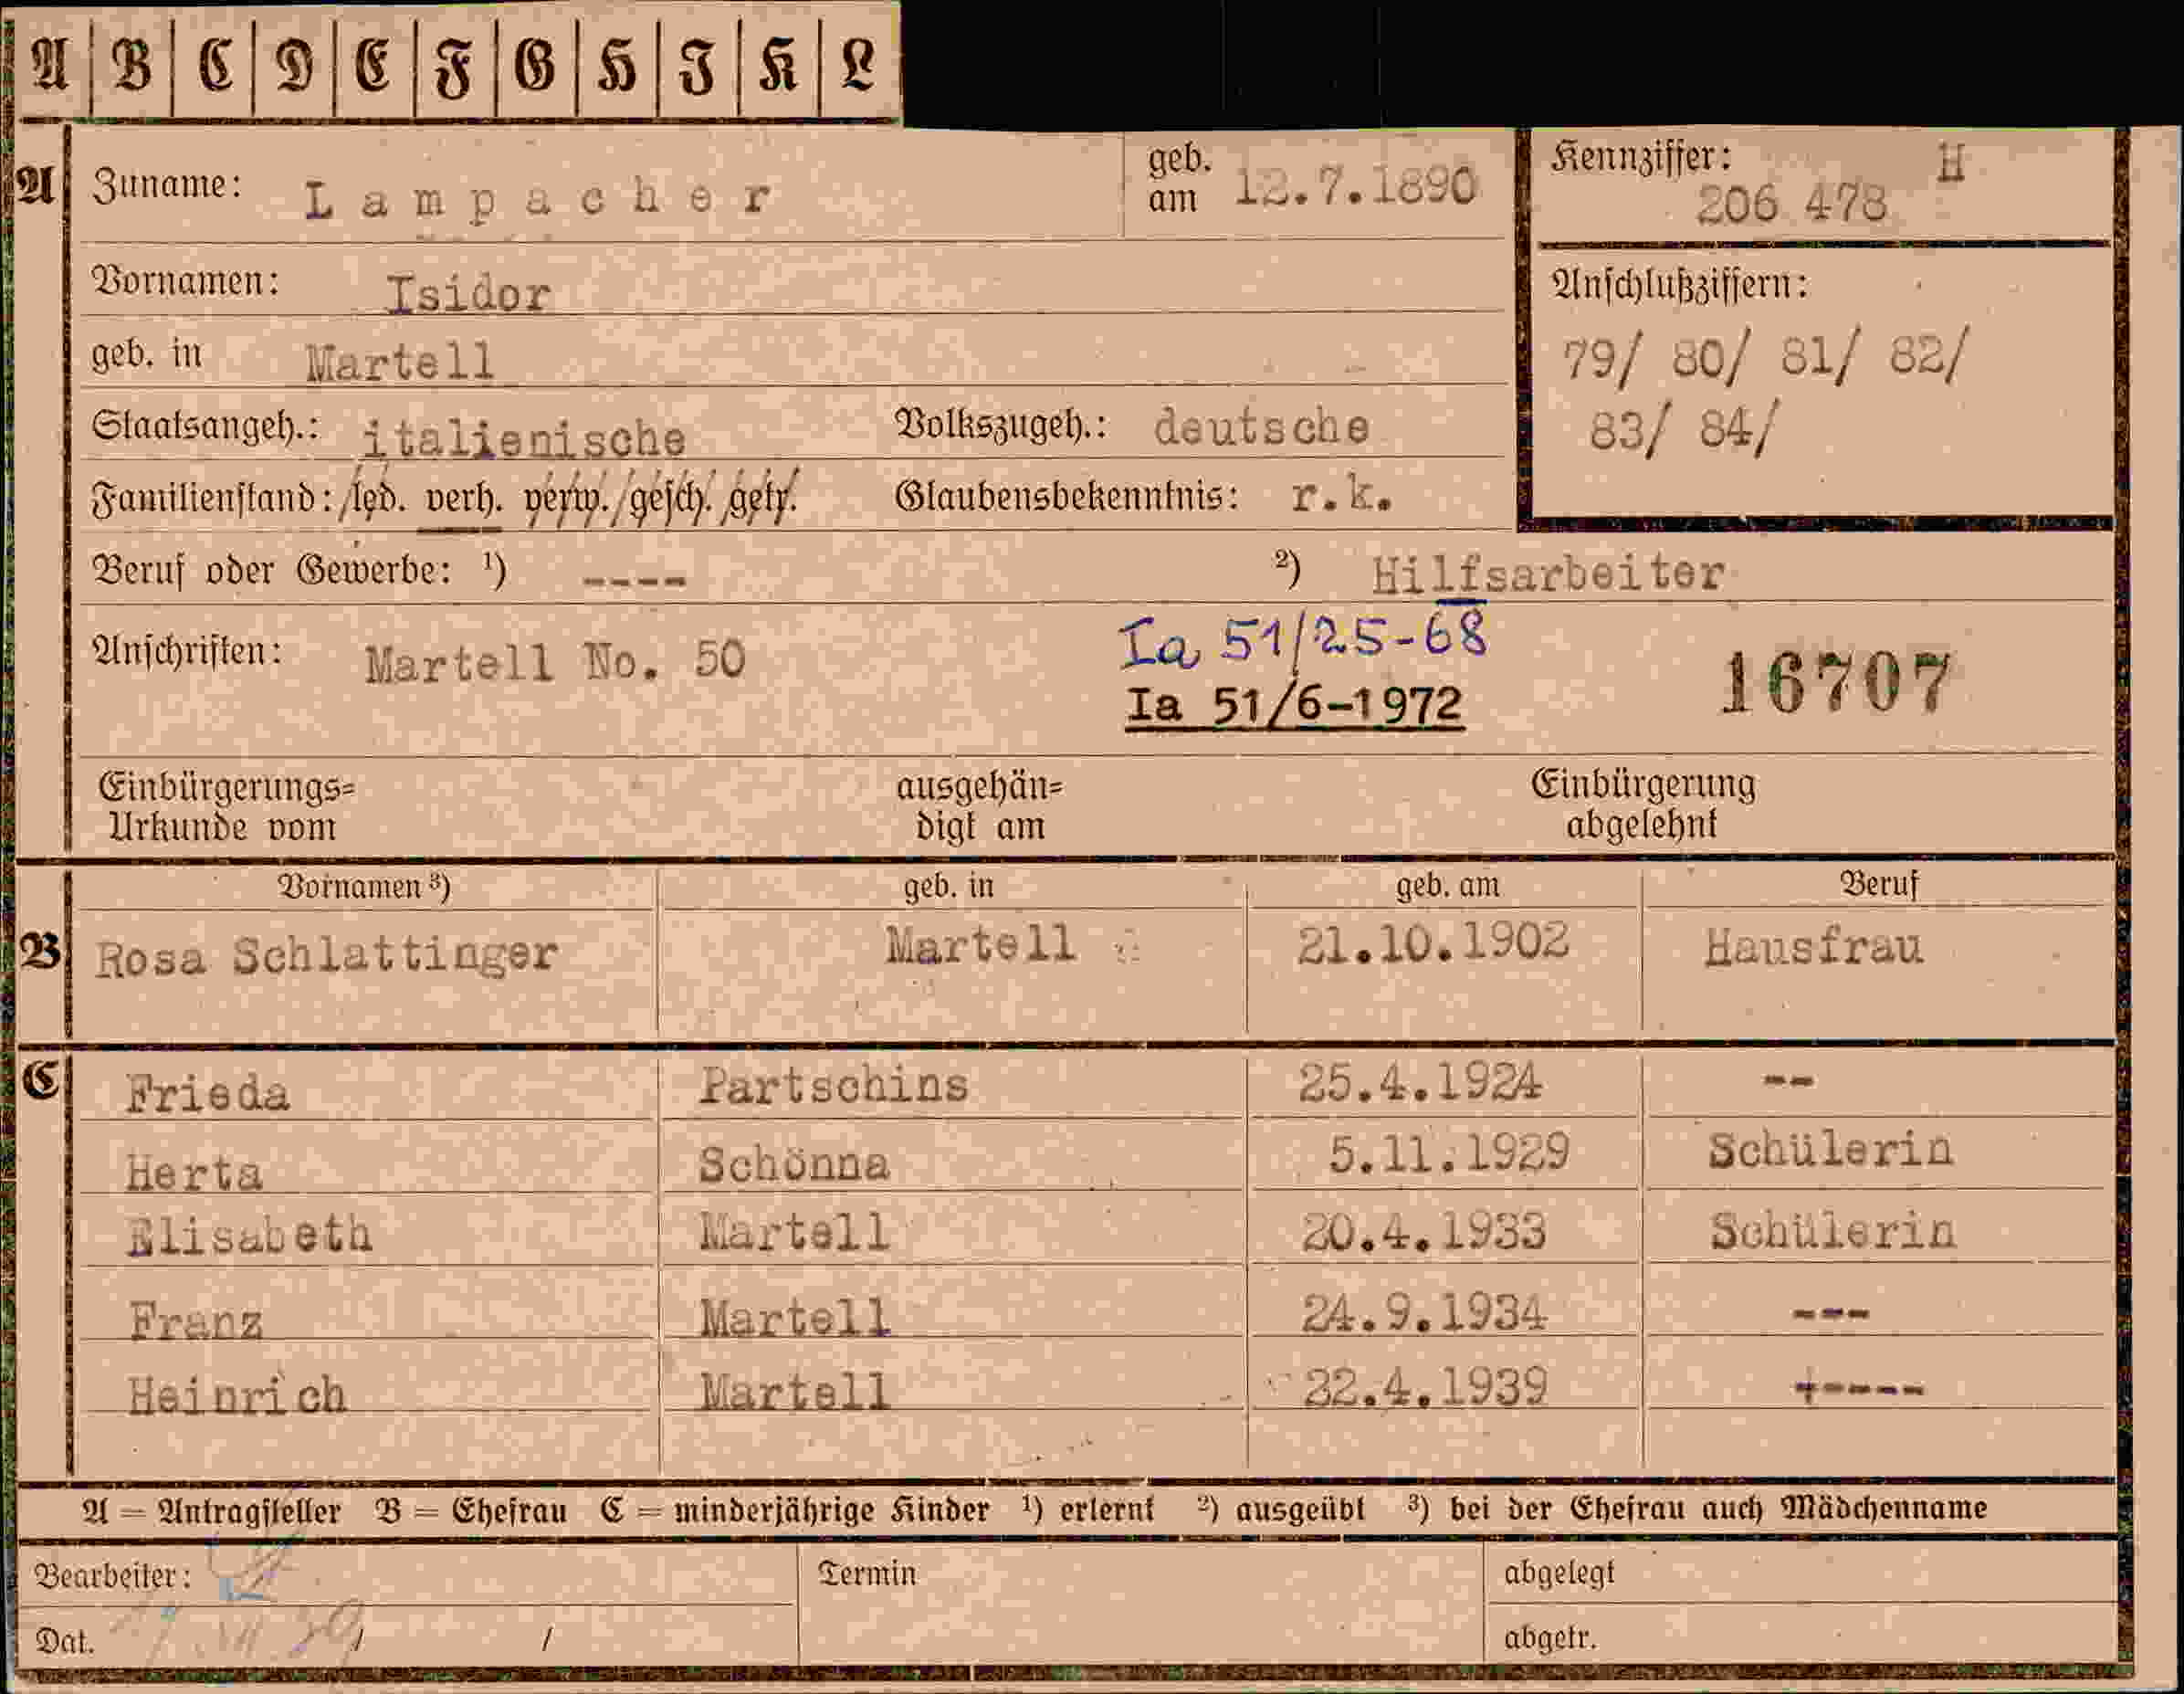 A B C D E F G H I K L
A Zuname: Lampacher geb. am 12.7.1890 Kennziffer: H 206 478
Vornamen: Isidor
Anschlußziffern:
geb. in Martell 79/ 80/ 81/ 82/
Staatsangeh.: italienische Volkszugeh.: deutsche 83/ 84/
Familienstand: led. verh. verw. gesch. getr. Glaubensbekenntnis: r.k.
Beruf oder Gewerbe: ¹) ---- ²) Hilfsarbeiter
Anschriften: Martell No. 50 Ia 51/25-68 16707
Ia 51/6-1972
Einbürgerungs= ausgehän= Einbürgerung
Urkunde vom digt am abgelehnt
Vornamen ³) geb. in geb. am Beruf
B Rosa Schlattinger Martell 21.10.1902 Hausfrau
C Frieda Partschins 25.4.1924 --
Herta Schönna 5.11.1929 Schülerin
Elisabeth Martell 20.4.1933 Schülerin
Franz Martell 24.9.1934 ---
Heinrich Martell 22.4.1939 +----
A = Antragsteller B = Ehefrau C = minderjährige Kinder ¹) erlernt ²) ausgeübt ³) bei der Ehefrau auch Mädchenname
Bearbeiter: Termin abgelegt
Dat. / / abgetr.